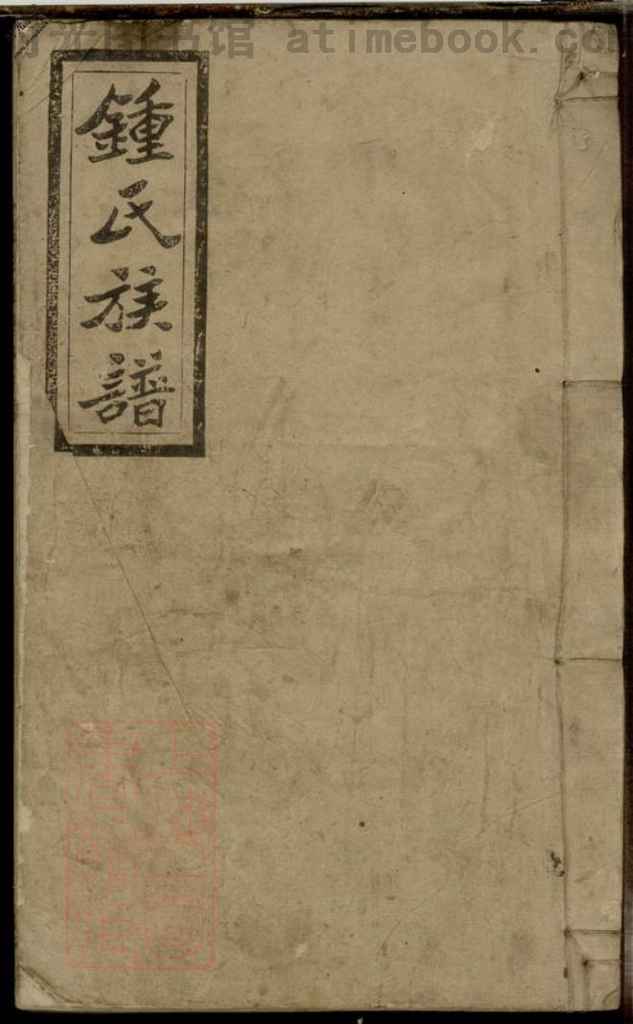 书馆 atimebook.co
鍾氏族譜